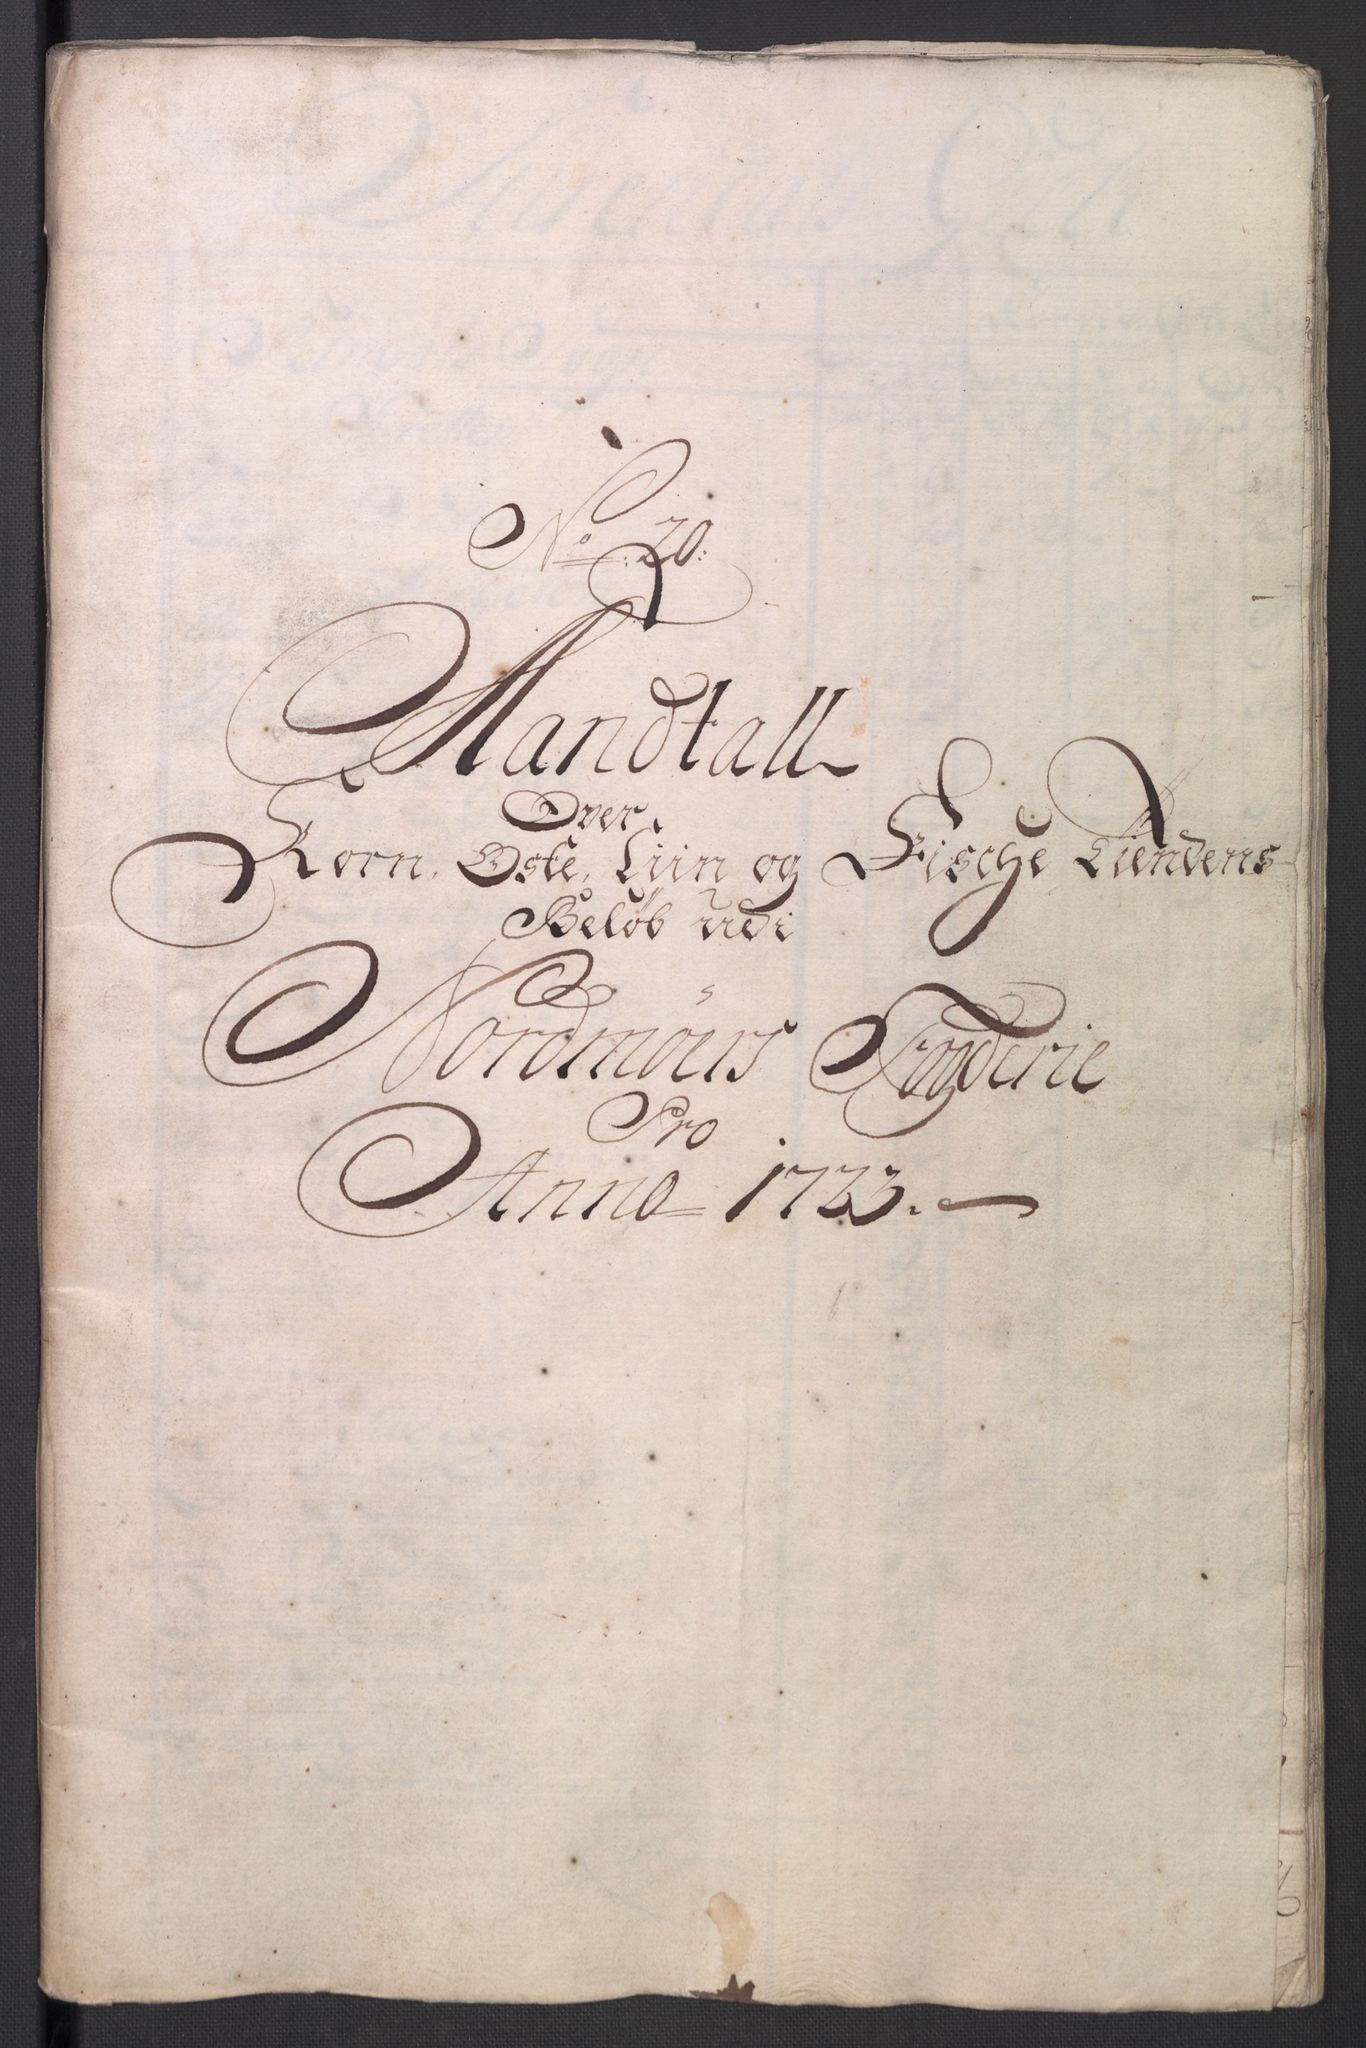 No: 20:
Mandtall
Over
Korn, Oste, Liin og Fische Tiendens
Beløb udi
Nordmöers Fogderie
Pro
Anno 1723.